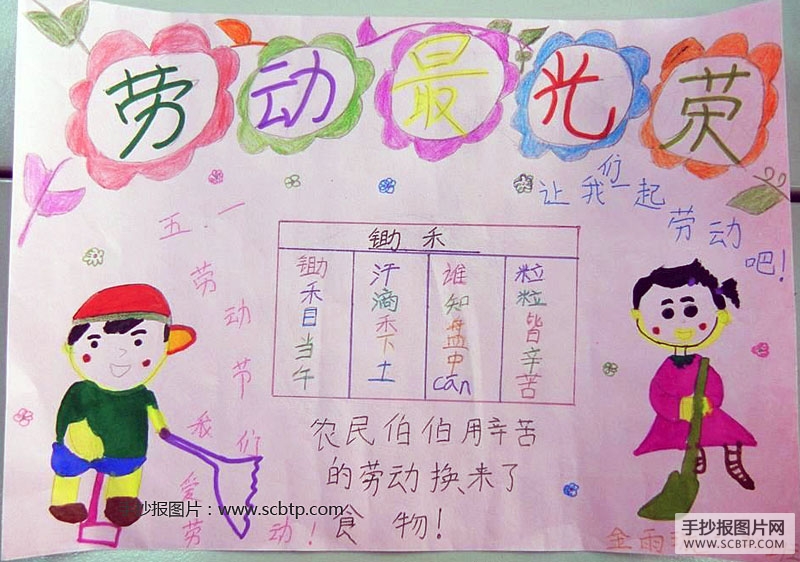 劳动最光荧
让我们一起
劳动
吧！
五.一
劳动节我们
爱劳动！
锄禾
锄禾目当午
汗滴禾下土
谁知盘中cān
粒粒皆辛苦
农民伯伯用辛苦
的劳动换来了
食物！
手抄报图片：www.scbtp.com
金雨
手抄报图片网
WWW.SCBTP.COM